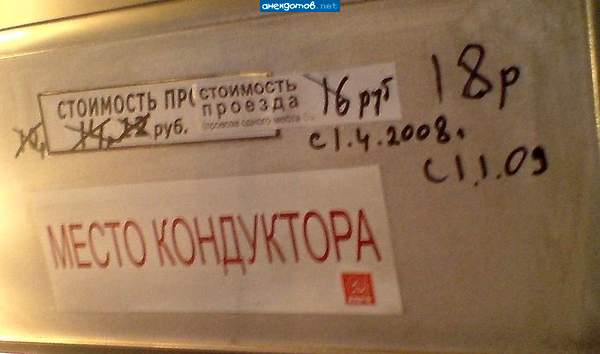 анекдотов.net
СТОИМОСТЬ ПРО
СТОИМОСТЬ
проезда
10, 14, 12 руб.
16 руб
18р
с 1.4.2008г
с 1.1.09
МЕСТО КОНДУКТОРА